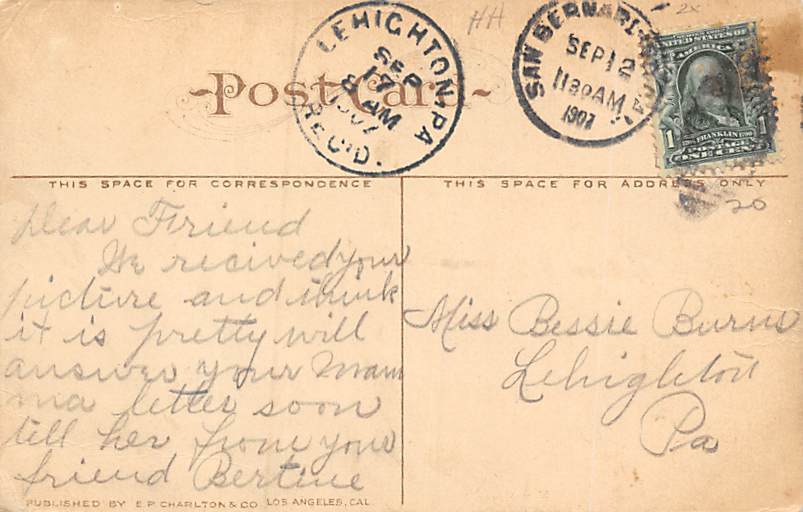 HH
2x
LEHIGHTON, PA
SEP
17
8 AM
1907
REC'D.
SAN BERNARDINO
SEP 12
1130AM
1907
UNITED STATES OF
AMERICA
1 FRANKLIN 1
POSTAGE
ONE CENT
Post Card
THIS SPACE FOR CORRESPONDENCE
THIS SPACE FOR ADDRESS ONLY
20
Dear Friend
We recived your
picture and think
it is pretty will
answer your Mam
ma letter soon
tell her from your
friend Bertine
Miss Bessie Burns
Lehighton
Pa
PUBLISHED BY E.P. CHARLTON & CO. LOS ANGELES, CAL.